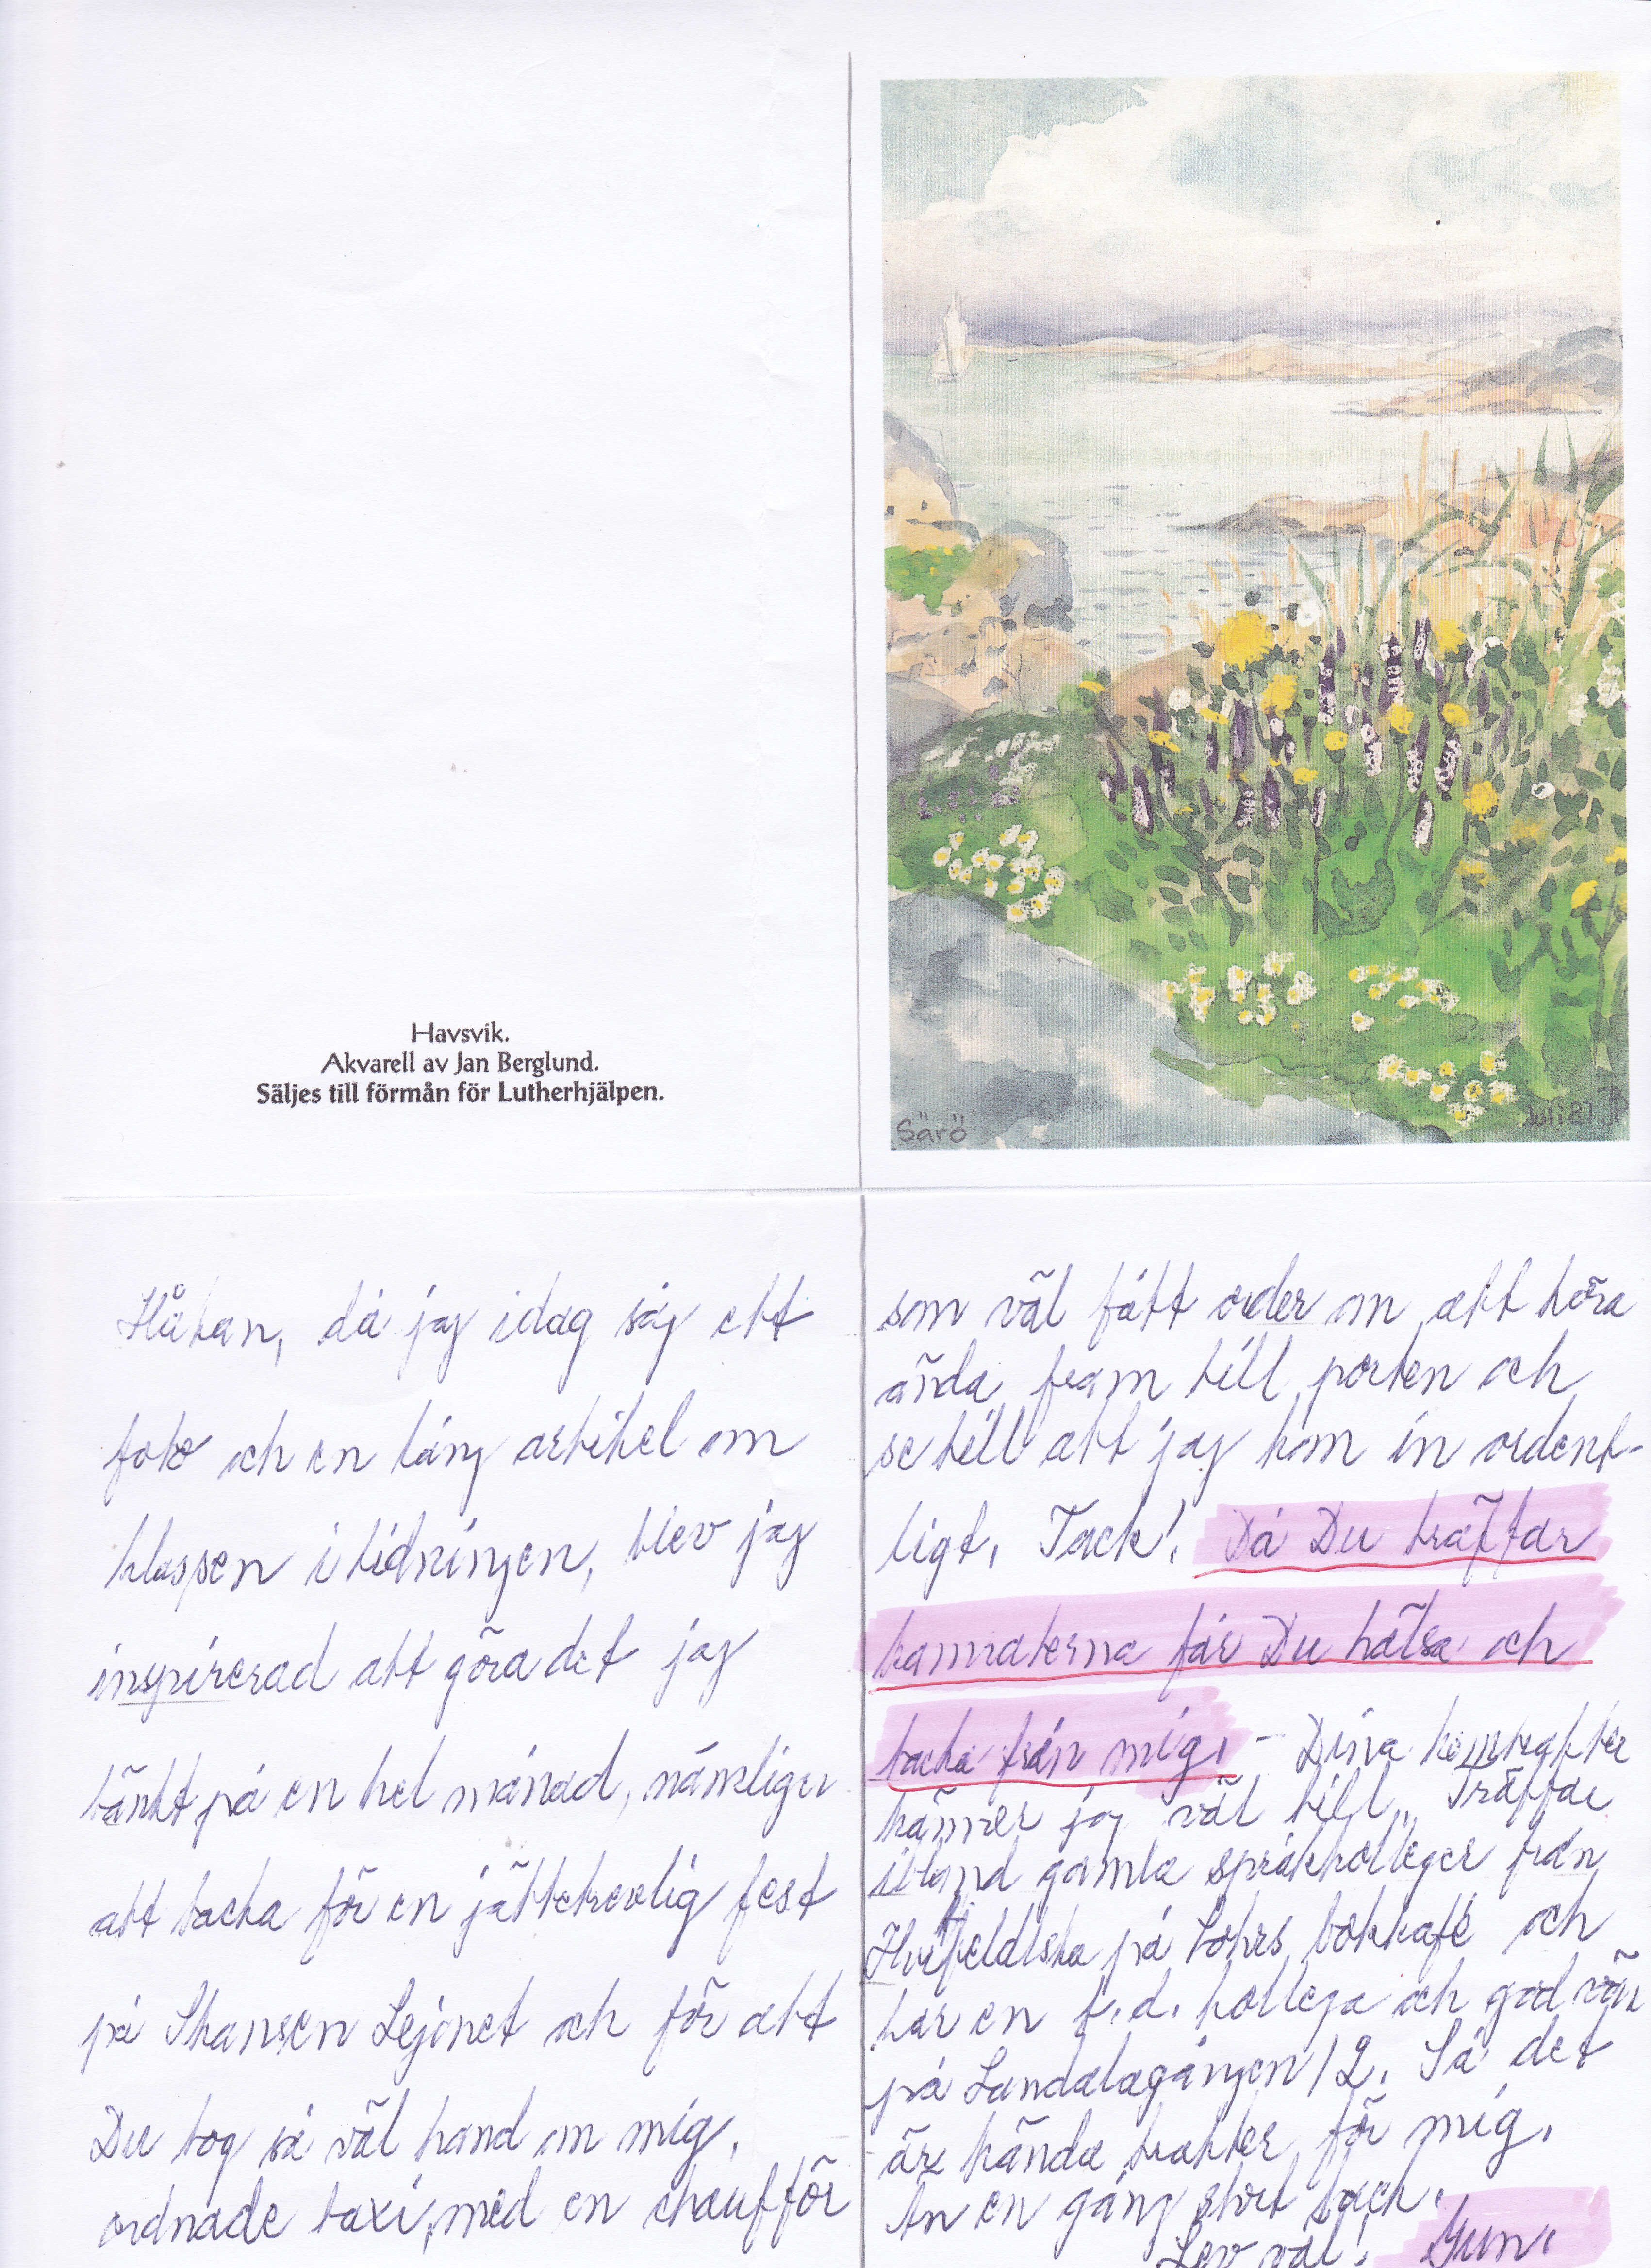 Havsvik.
Akvarell av Jan Berglund.
Säljes till förmån för Lutherhjälpen.
Särö
Juli 87
Håkan, då jag idag såg ett
foto och en lång artikel om
klassen i tidningen, blev jag
inspirerad att göra det jag
tänkt på en hel månad, nämligen
att tacka för en jättetrevlig fest
på Skansen Lejonet och för att
Du tog så väl hand om mig,
ordnade taxi, med en chaufför
som väl fått order om att köra
ända fram till porten och
se till att jag kom in ordent-
ligt. Tack! Då Du träffar
kamraterna får Du hälsa och
tacka från mig. - Dina hemtrakter
känner jag väl till. Träffar
ibland gamla språkkolleger från
Hvitfeldtska på Lohrs bokkafé och
har en f.d. kollega och god vän
på Landalagången 12. Så det
är kända trakter för mig.
Än en gång stort tack.
Lev väl! Gun.